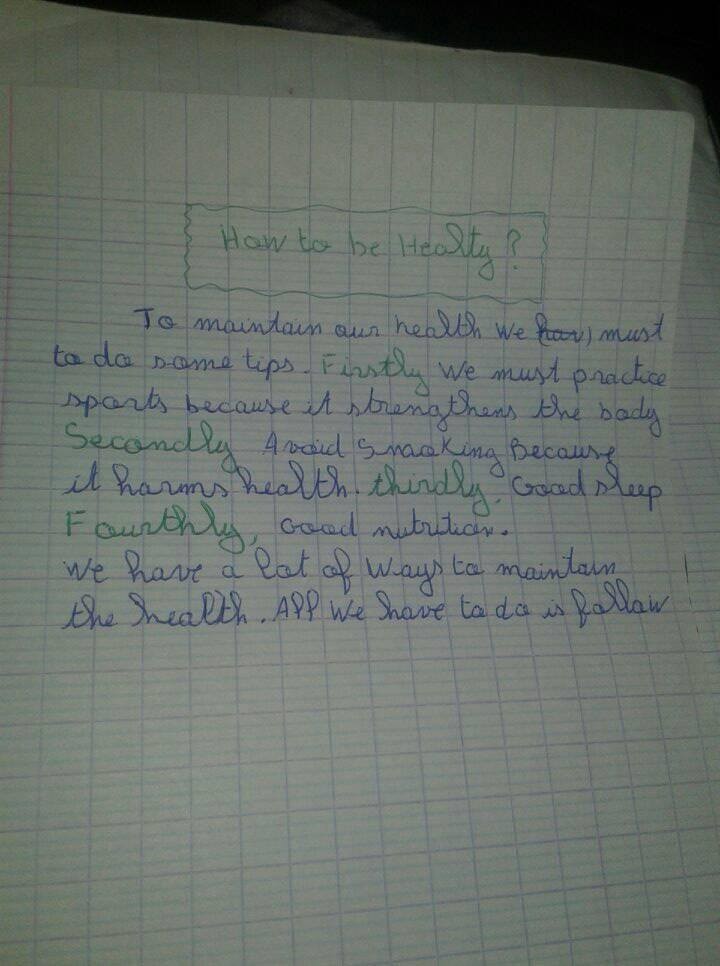 How to be Healty ?
To maintain our health we must
to do some tips. Firstly we must practice
sports because it strengthens the body
Secondly Avoid Smoking Because
it harms health. thirdly, Good sleep
Fourthly, Good nutrition.
We have a lot of ways to maintain
the health. All we have to do is follow